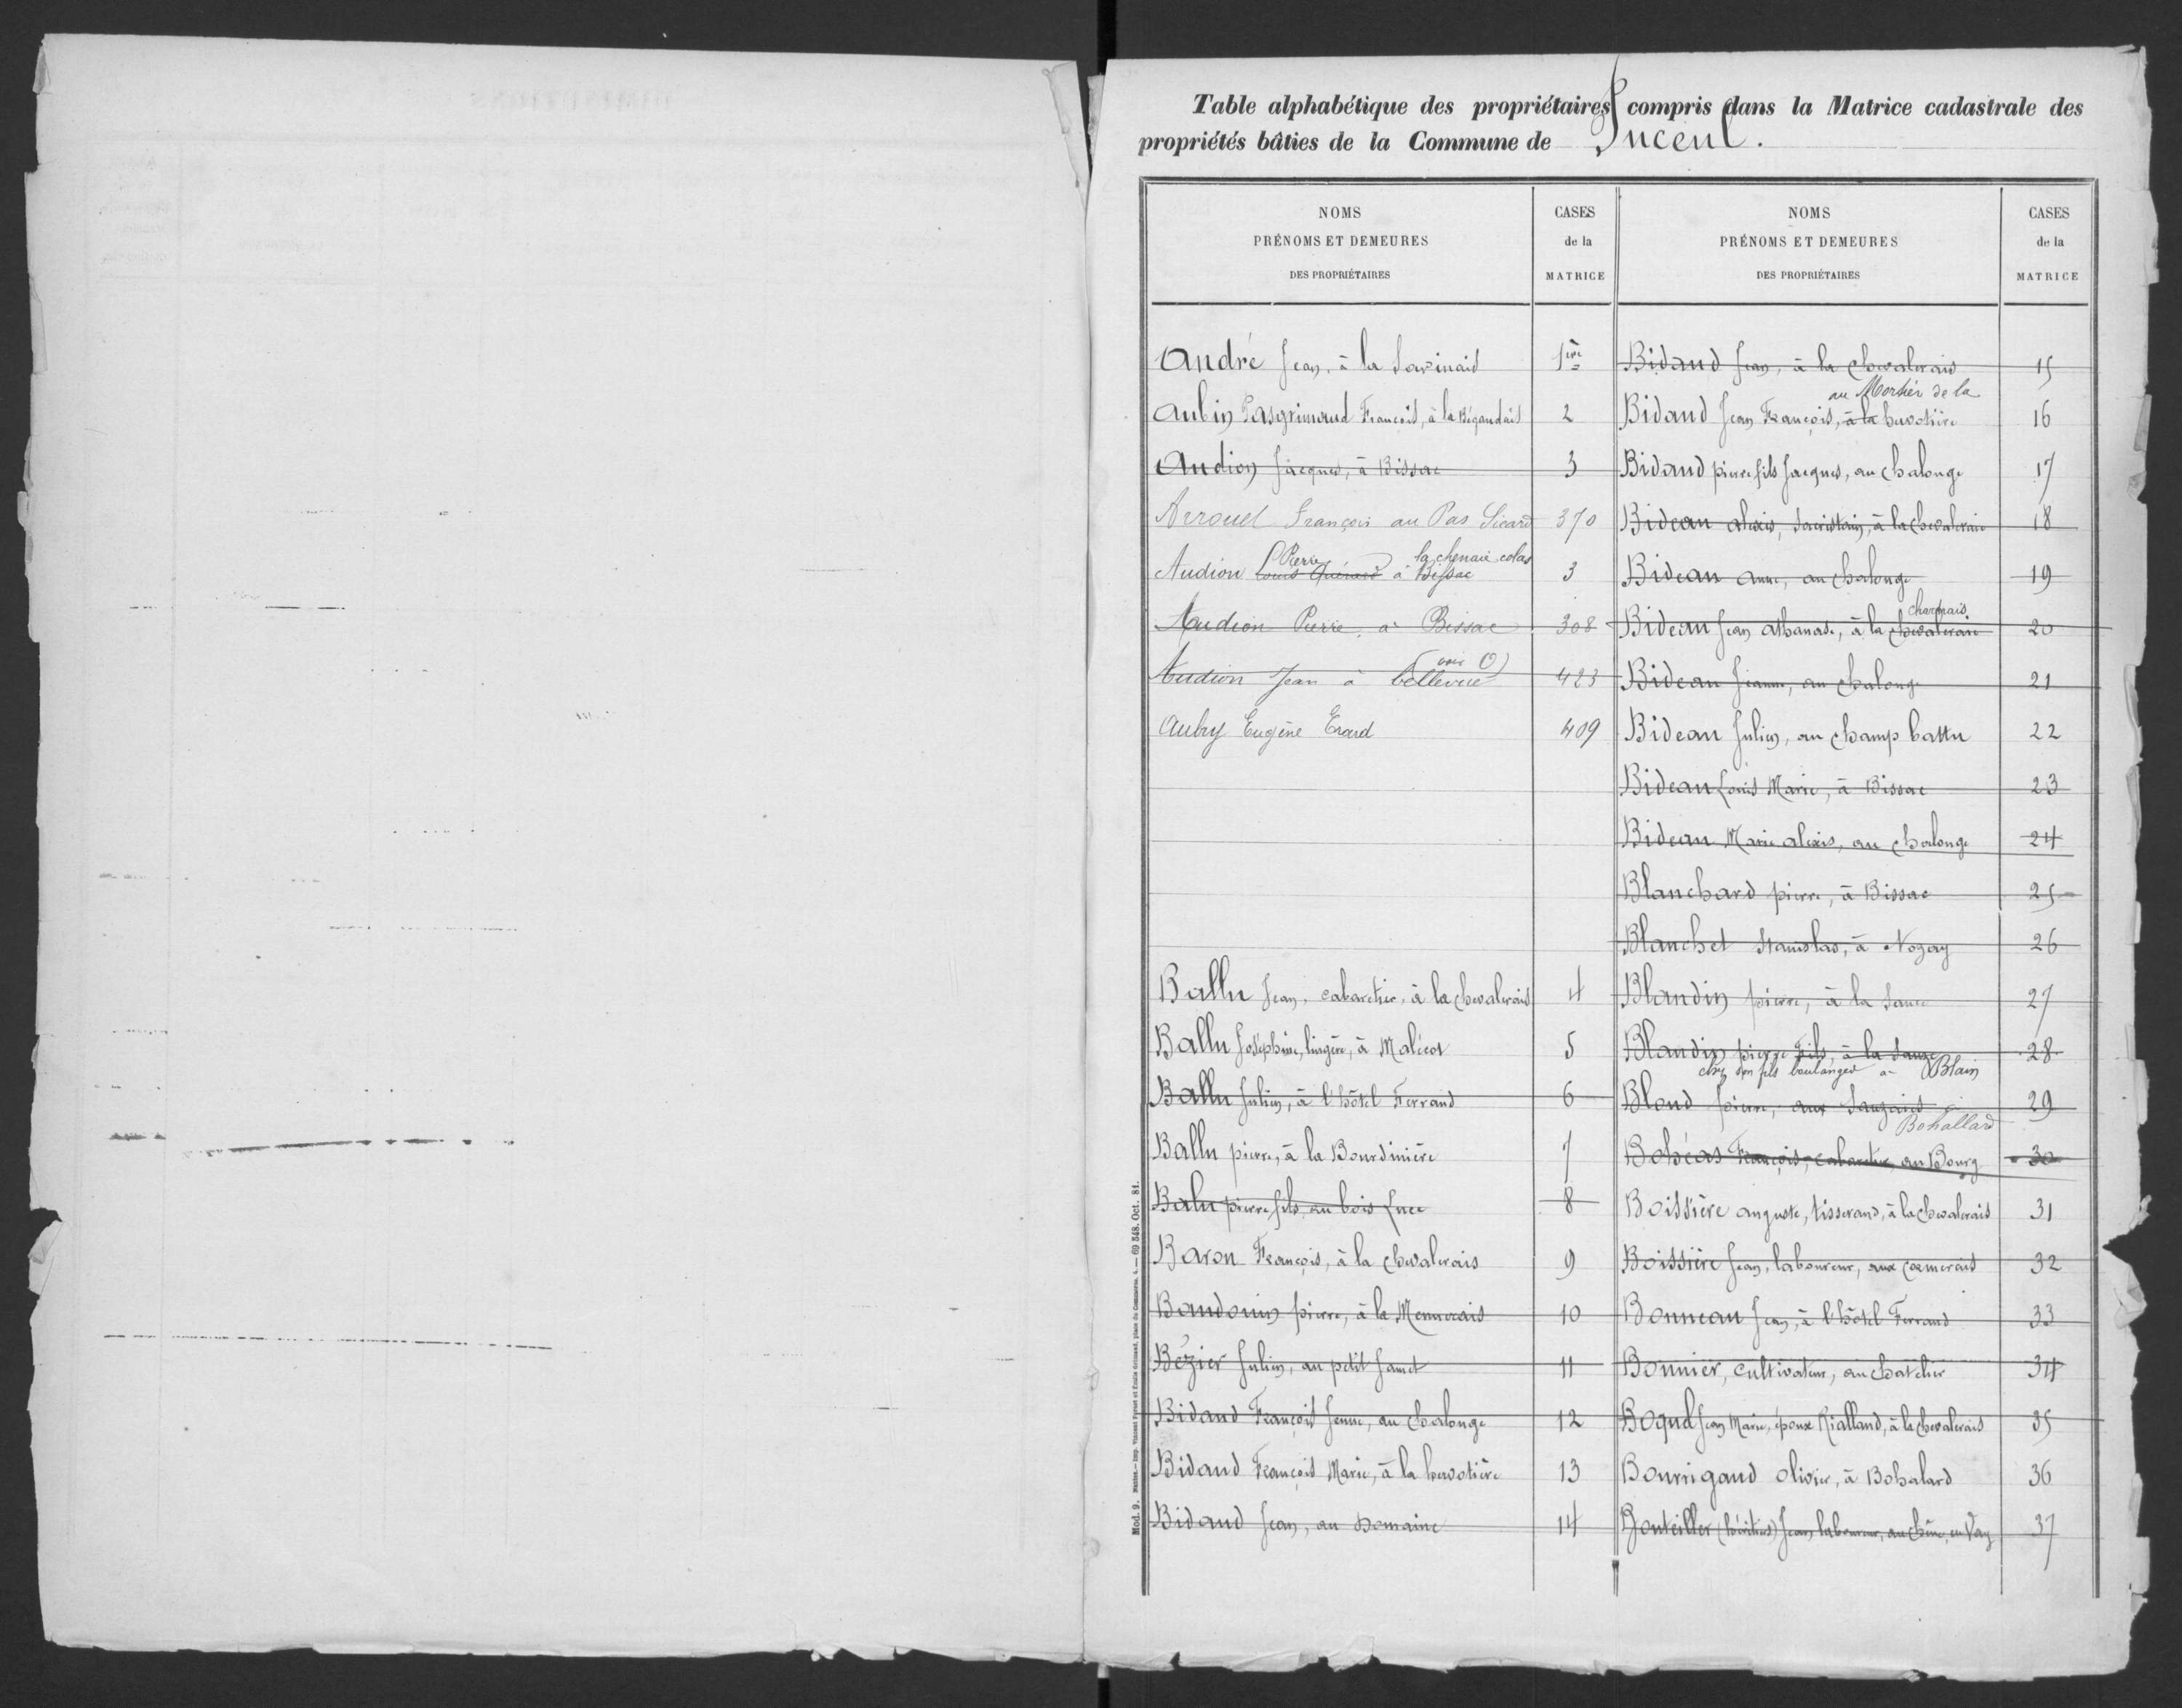 Table alphabétique des propriétaires compris dans la Matrice cadastrale des
propriétés bâties de la Commune de Puceul.
NOMS
PRÉNOMS ET DEMEURES
DES PROPRIÉTAIRES
CASES
de la
MATRICE
André Jean, à la Savinais 1ère
Aubin Pasgrimaud François, à la Bégaudais 2
Audion Jacques, à Bissac 3
Arrouet François au Pas Sicard 370
Pierre la chenaie colas
Audion Louis Guérard à Bissac 3
Audion Pierre, à Bissac 308
(voir O)
Audion Jean à bellevue 423
Aubry Eugène Erard 409
Ballu Jean, cabaretier, à la chevalerais 4
Ballu Joséphine, lingère, à Malécot 5
Ballu Julien, à l'hôtel Ferrand 6
Ballu pierre, à la Bourdinière 7
Balu pierre, fils, au bois Luce 8
Baron François, à la chevalerais 9
Baudouin pierre, à la Mennerais 10
Bézier Julien, au petit Jamet 11
Bidaud François Jenne, au chalonge 12
Bidaud François Marie, à la huvotière 13
Bidaud Jean, au Domaine 14
NOMS
PRÉNOMS ET DEMEURES
DES PROPRIÉTAIRES
CASES
de la
MATRICE
Bidaud Jean, à la chevalerais 15
au Mortier de la
Bidaud Jean François, à la huvotière 16
Bidaud pierre, fils Jacques, au chalonge 17
Bideau alexis, sacristain, à la chevalerais 18
Bideau anne, au chalonge 19
charpais
Bideau Jean athanase, à la chevalerais 20
Bideau Jeanne, au chalonge 21
Bideau Julien, au champ battu 22
Bideau Louis Marie, à Bissac 23
Bideau Marie alexis, au chalonge 24
Blanchard pierre, à Bissac 25
Blanchet stanislas, à Nozay 26
Blandin pierre, à la 27
Blandin pierre Fils, à la 28
chez son fils boulanger à Blain
Bloud pierre, aux 29
Bohallard
Bohéas François, cabaretier, au Bourg 30
Boissière auguste, tisserand, à la chevalerais 31
Boissière Jean, laboureur, aux cormerais 32
Bonneau Jean, à l'hôtel Ferrand 33
Bonnier, cultivateur, au chatelier 34
Boquel Jean Marie, époux Rialland, à la chevalerais 35
Bourrigaud olivier, à Bohalard 36
Bouteiller (héritiers) Jean, laboureur, au chêne, en Vay 37
Mod. 9. Nantes.—Imp. Vincent Forest et Émile Grimaud, place du Commerce, 4.—69 348. Oct. 81.